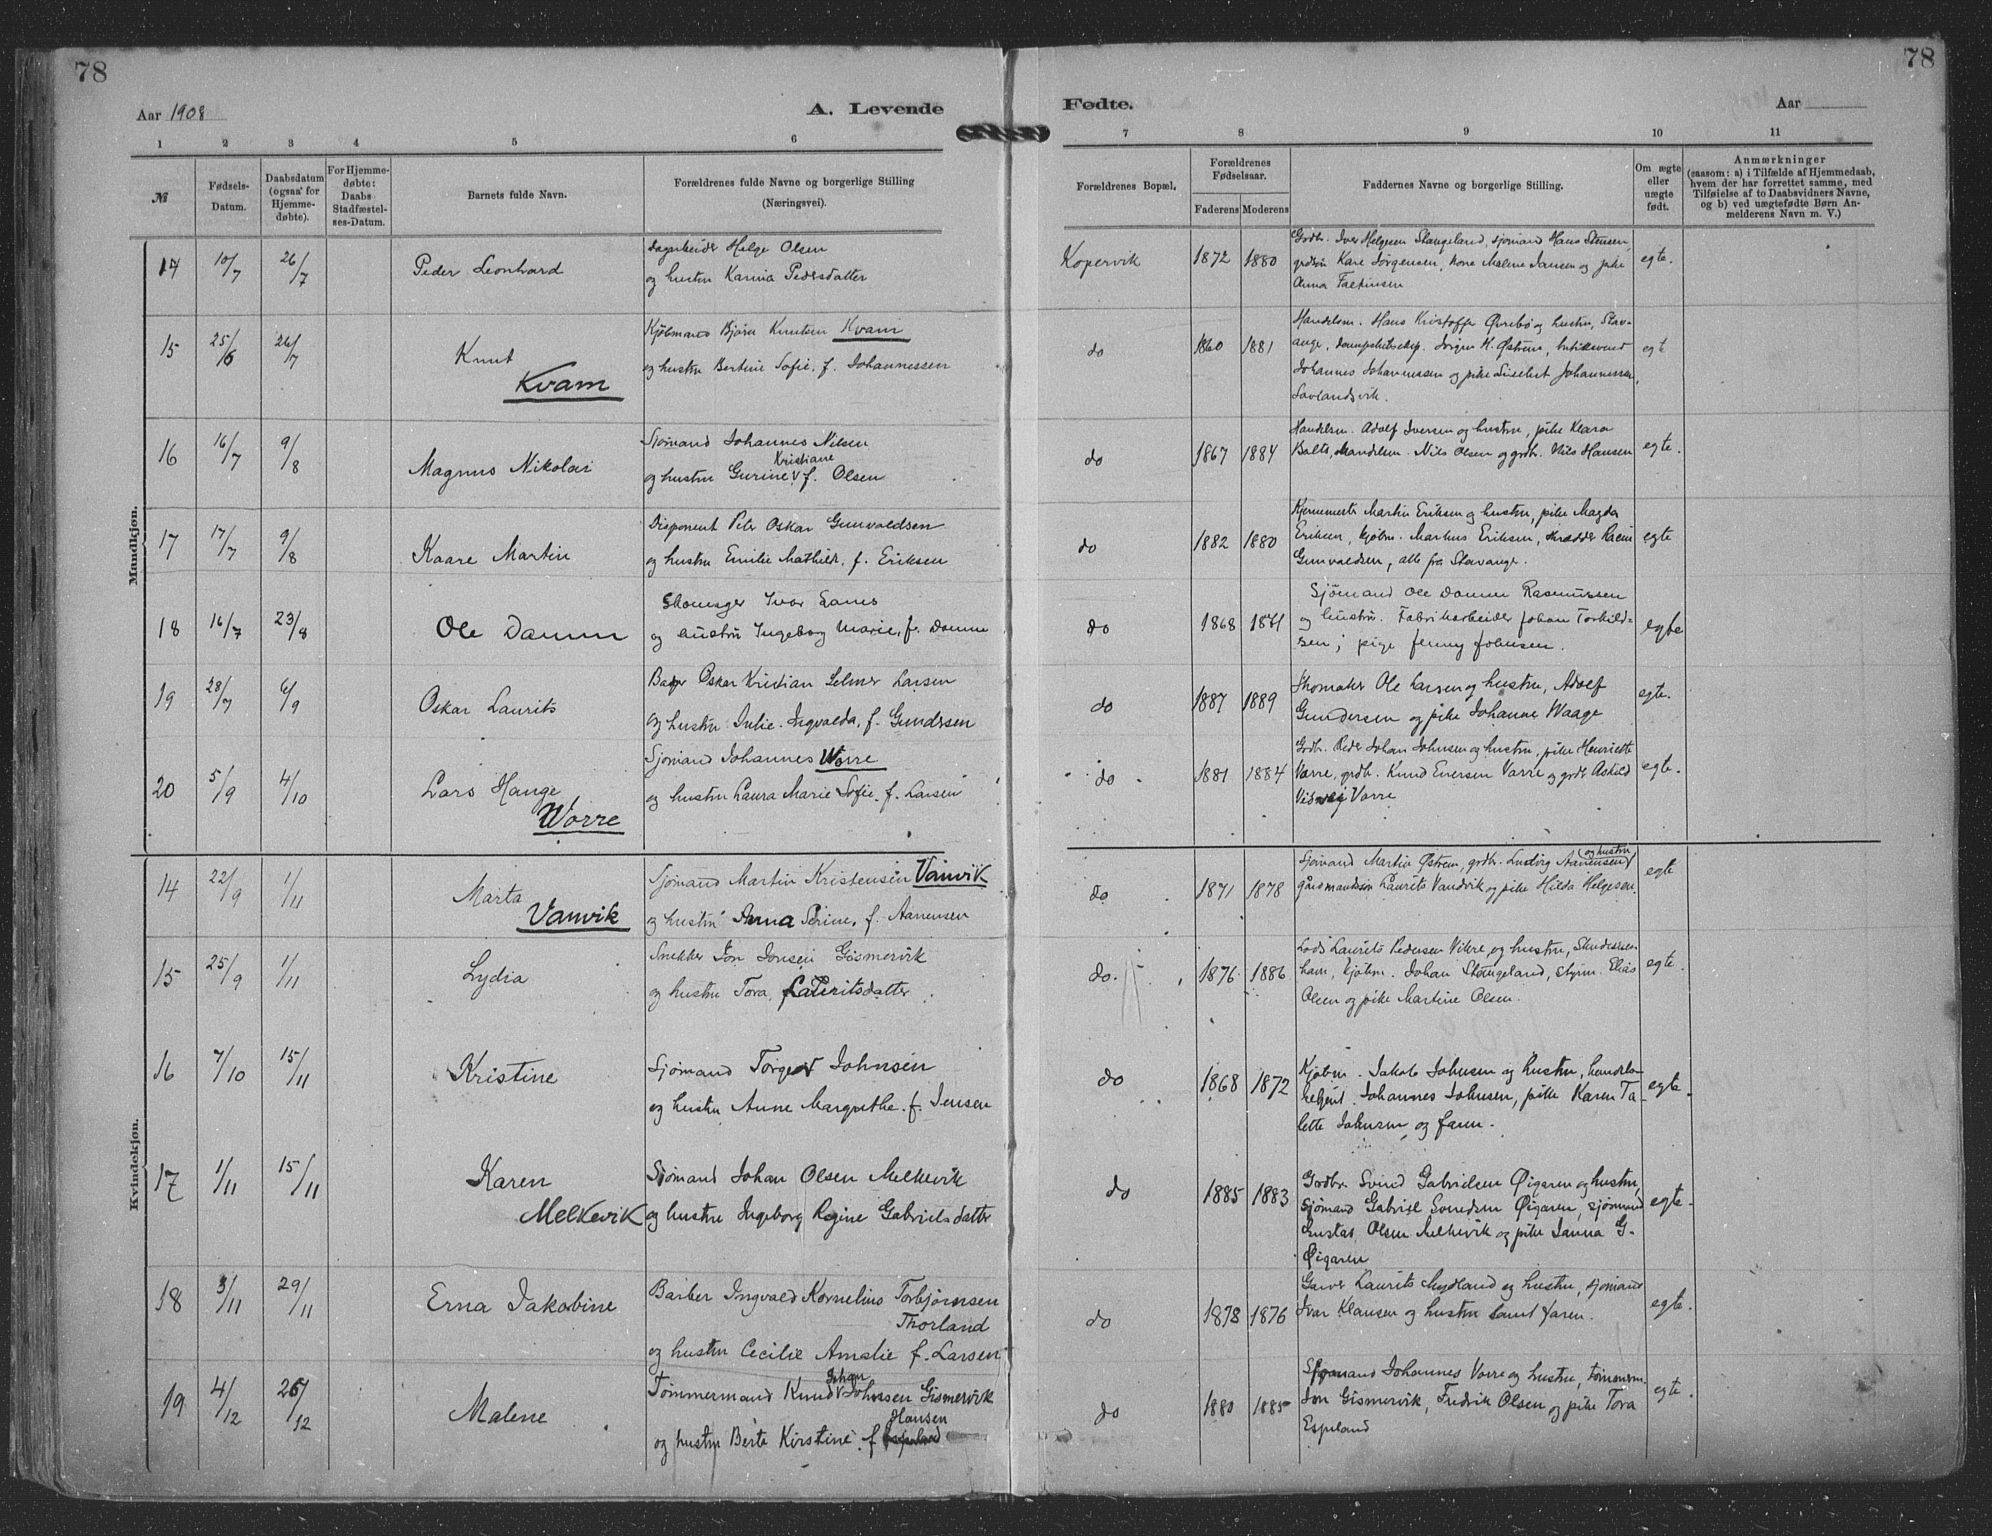 78
78
Aar 1908
A. Levende
Fødte.
Aar
1 2 3 4 5 6 7 8 9 10 11
№
Fødsels-Datum.
Daabsdatum (ogsaa for Hjemme-døbte).
For Hjemme-døbte: Daabs Stadfæstel-ses-Datum.
Barnets fulde Navn.
Forældrenes fulde Navne og borgerlige Stilling (Næringsvei).
Forældrenes Bopæl.
Forældrenes Fødselsaar.
Faderens Moderens
Faddernes Navne og borgerlige Stilling.
Om ægte eller uægte født.
Anmærkninger
(saasom: a) i Tilfælde af Hjemmedaab, hvem der har forrettet samme, med Tilføielse af to Daabsvidners Navne, og b) ved uægtefødte Børn Anmelderens Navn m. V.)
Mandkjøn.
14 10/7 26/7 Peder Leonhard
Dagarbeider Helge Olsen
og hustru Karina Pedersdatter
Kopervik 1872 1880
Grdbr. Iver Helgesen Stangeland, sjømand Hans Stensen,
grdsøn Kare Jørgensen, kone Malene Jansen og pike
Anna
egte.
15 25/6 26/7 Knut
Kvam
Kjøbmand Bjørn Knutsen Kvam
og hustru Bertine Sofie, f. Johannessen
do 1860 1881
Handelsm. Hans Kristoffer Øvrebø og hustru, Stav-
anger, dampskibsexp. Jørgen H. Østrem,
Johannes Johannessen og pike Johannessen,
Sævlandsvik.
egte
16 16/7 9/8 Magnus Nikolai
Sjømand Johannes Nilsen
og hustru Gurine Kristiane f. Olsen
do 1867 1884
Handelsm. Adolf Iversen og hustru, pike Klara
Handelsm. Nils Olsen og grdb. Nils Hansen
egte.
17 17/7 9/8 Kaare Martin
Disponent Peter Oskar Gunvaldsen
og hustru Emilie Mathilde, f. Eriksen
do 1882 1880
Martin Eriksen og hustru, pike Magda
Eriksen, kjøbm. Markus Eriksen, skrædder
Gunvaldsen, alle fra Stavanger.
egte
18 16/7 23/8 Ole Damm
Skomager Ivar
og hustru Ingeborg Marie, f. Damm
do 1868 1871
Sjømand Ole Damm Rasmussen
og hustru. Fabrikarbeider Johan Torkild-
sen; pige Jenny Johnsen.
egte
19 28/7 6/9 Oskar Laurits
Bager Oskar Kristian Selmer Larsen
og hustru Julie Ingvalda, f. Gundersen
do 1887 1889
Skomaker Ole Larsen og hustru, Adolf
Gundersen og pike Johanne Waage
egte.
20 5/9 4/10 Lars Hauge
Worre
Sjømand Johannes Worre
og hustru Laura Marie Sofie, f. Larsen
do 1881 1884
Grdb. Peder Johan Johnsen og hustru, pike Henriette
Vorre, grdb. Knud Eversen Vorre og grdb. Askild
Visnæs Vorre
egte.
Kvindekjøn.
14 22/9 1/11 Marta
Vanvik
Sjømand Martin Kristensen Vanvik
og hustru Anna Serine, f. Aanensen
do 1871 1878
Sjømand Martin Østrem, grdb. Ludvig Aanensen og hustru
Laurits Vandvik og pike Hilda Helgesen.
egte
15 25/9 1/11 Lydia
Snekker Jon Jonsen Gismervik
og hustru Tora, Lauritsdatter.
do. 1876. 1886
Lods Laurits Pedersen Vikre og hustru, Skudesnes-
havn, kjøbm. Johan Stangeland, styrm. Elias
Olsen og pike Martine Olsen.
egte.
16 7/10 15/11 Kristine
Sjømand Torger Johnsen
og hustru Anne Margrethe f. Jensen
do 1868 1872
Kjøbm. Jakob Johnsen og hustru, handels-
betjent Johannes Johnsen, pike Karen Ta-
lette Johnsen og faren.
egte.
17 1/11 15/11 Karen
Melkevik
Sjømand Johan Olsen Melkevik
og hustru Ingeborg Regine Gabrielsdatter
do 1885 1883
Grdbr. Svend Gabrielsen Øigaren og hustru,
sjømand Gabriel Svendsen Øigaren, sjømand
Gustav Olsen Melkevik og pike Janna G.
Øigaren
egte.
18 3/11 29/11 Erna Jakobine
Barber Ingvald Kornelius Torbjørnsen
Thorland
og hustru Cecilie Amalie f. Larsen
do 1878 1876
Garver Laurits Mydland og hustru, sjømand
Ivar Klausen og hustru samt faren.
egte.
19 4/12 26/12 Malene
Tømmermand Knud Johan Johnsen Gismervik
og hustru Berte Kirstine f. Hansen
do 1880 1885
Sjømand Johannes Vorre og hustru, tømmerm.
Jon Gismervik, Fredrik Olsen og pike Tora
Espeland
egte.